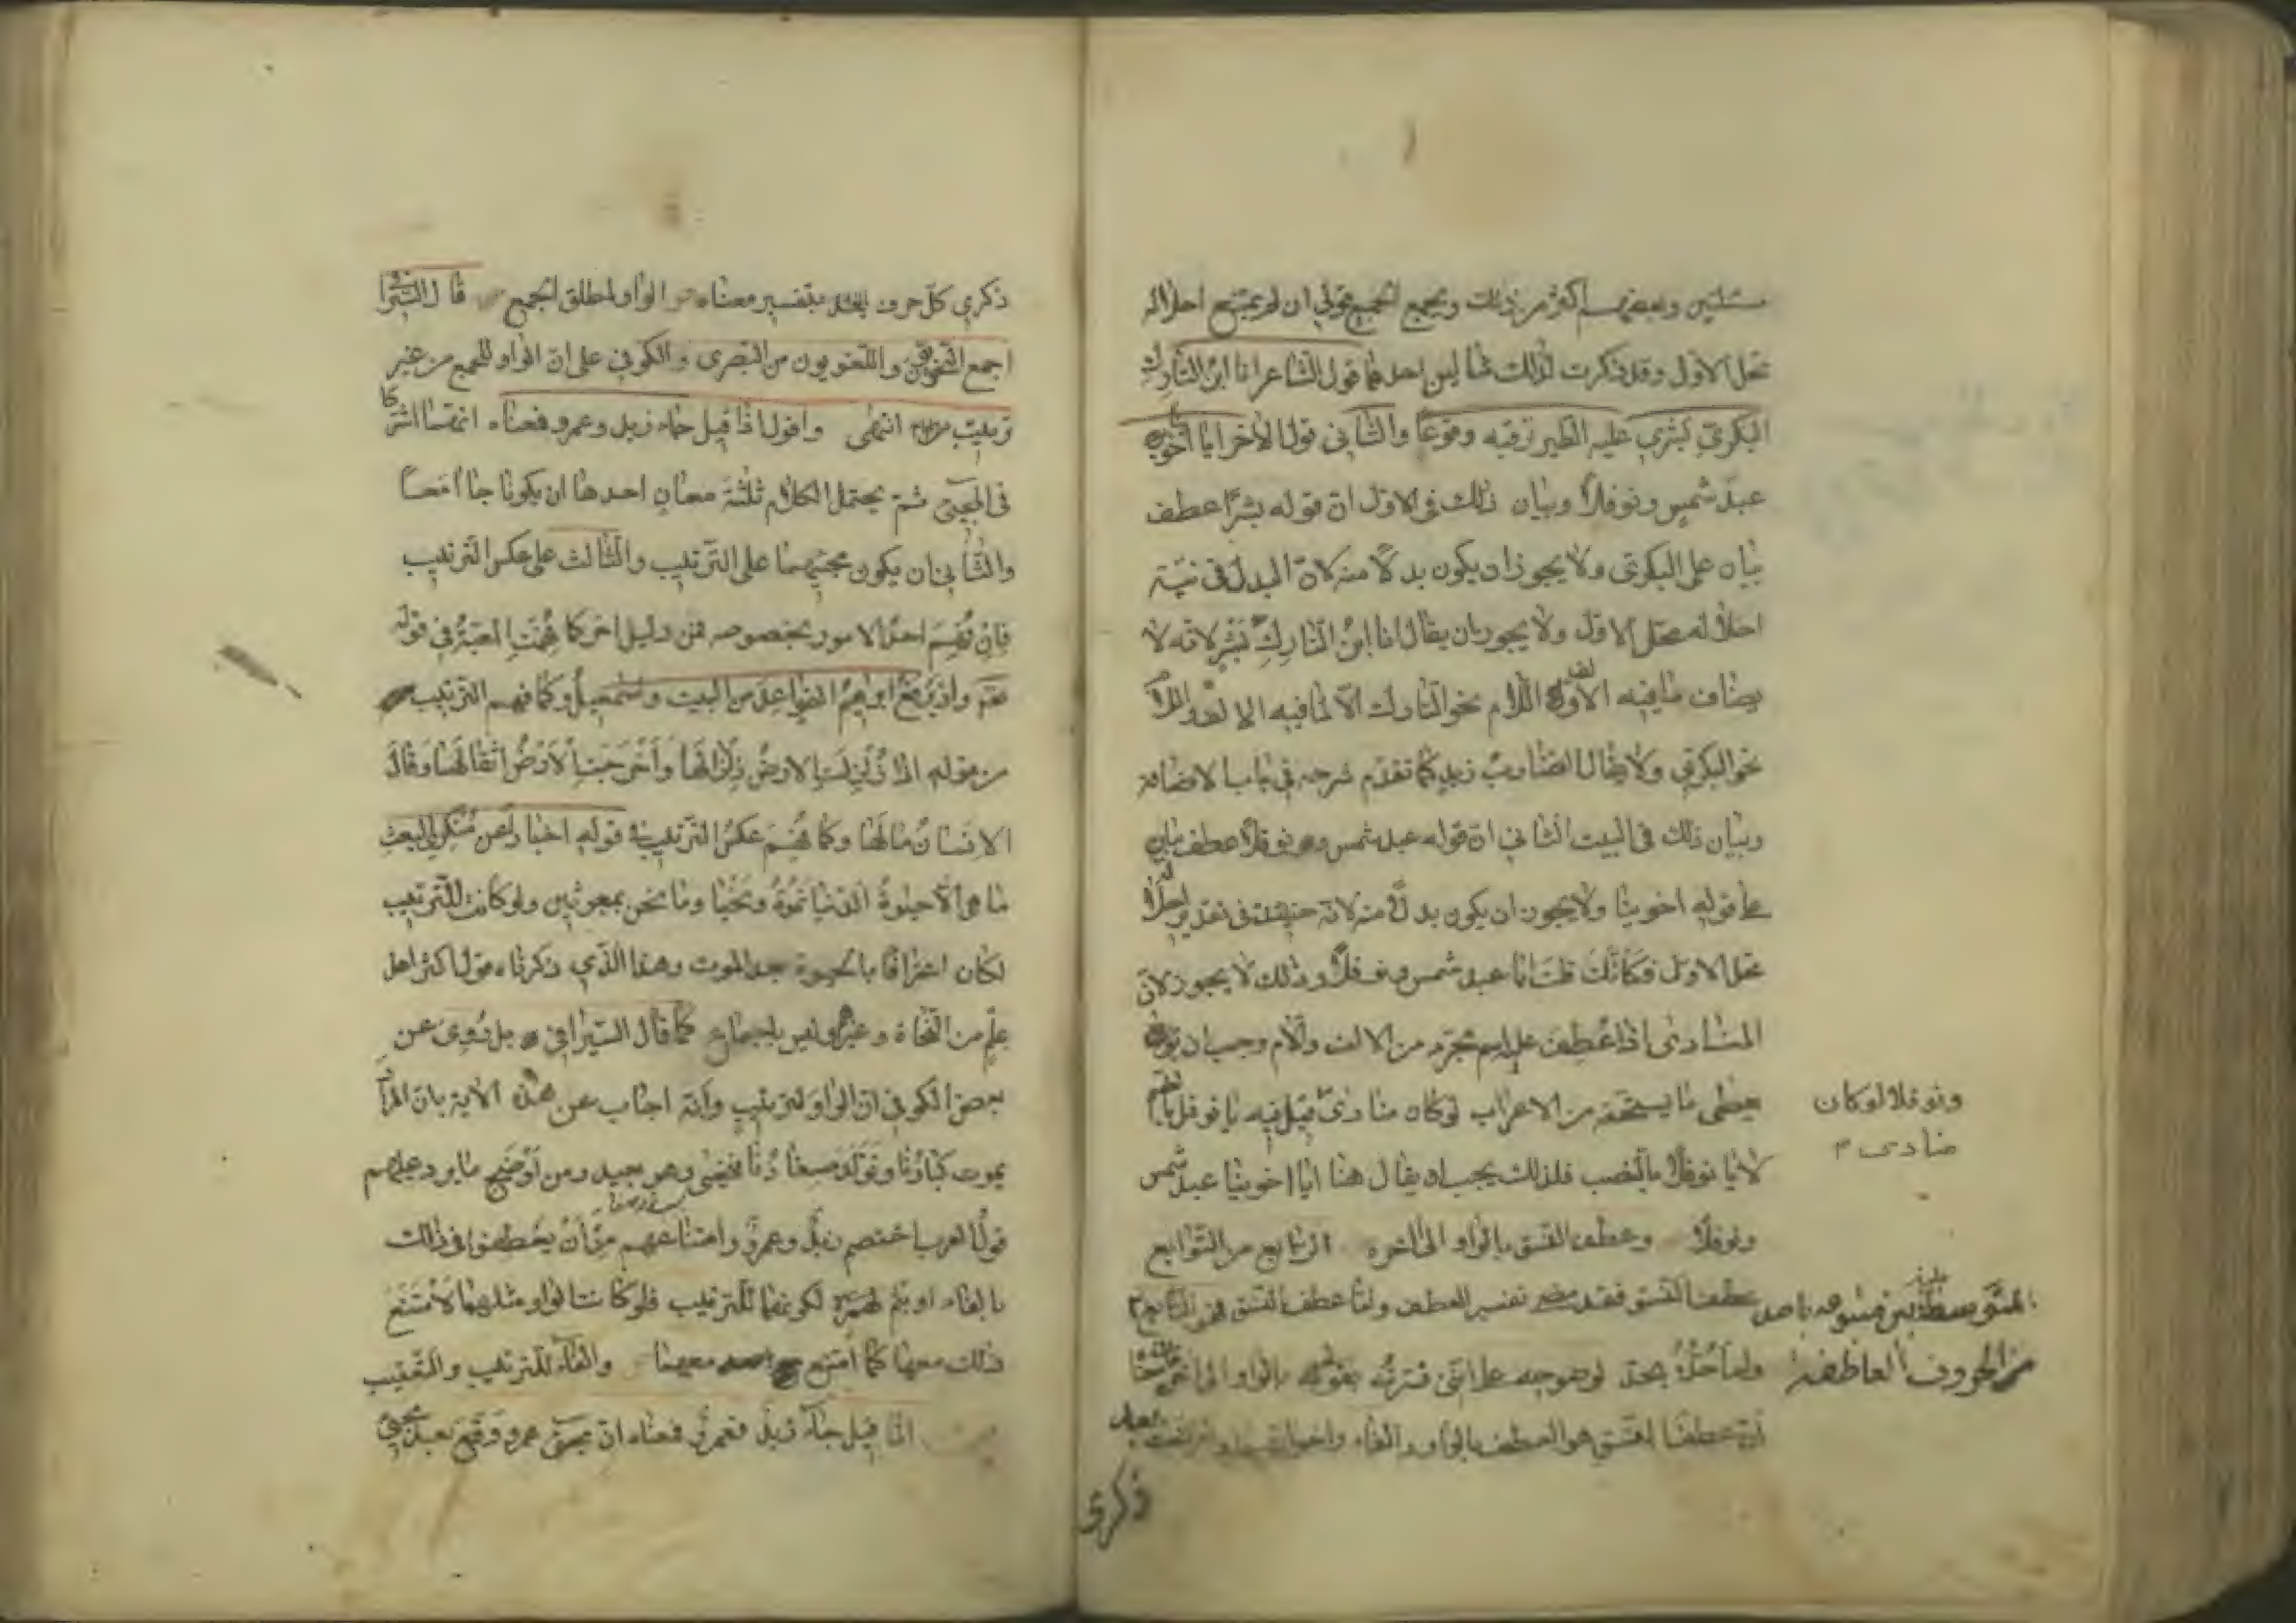 مسئلتين وبعضهم اكثر من ذلك ويجمع الجميع قولي ان لم يمتنع احلاله
محل الاول وقد ذكرت لذلك مثالين احدهما قول الشاعر انا ابن التارك
البكري بشر عليه الطير ترقبه وقوعا والثاني قول الاخر ايا اخوينا
عبد شمس ونوفلا وبيان ذلك في الاول ان قوله بشر اعطف
بيان على البكري ولا يجوز ان يكون بدلا منه لان البدل في نية
احلاله محل الاول ولا يجوز ان يقال انا ابن التارك بشر لانه لا
يضاف ما فيه الالف واللام نحو التارك الا لما فيه الالف واللام
نحو البكري ولا يقال الضارب زيد كما تقدم شرحه في باب الاضافة
وبيان ذلك في البيت الثاني ان قوله عبد شمس ونوفلا عطف بيان
على قوله اخوينا ولا يجوز ان يكون بدلا منه لانه حينئذ في تقدير احلاله
محل الاول فكانك قلت ايا عبد شمس ونوفلا وذلك لا يجوز لان
المنادى اذا عطف عليه اسم مجرد من الالف واللام وجب ان
يعطى ما يستحقه من الاعراب لو كان منادى قيل فيه يا نوفل بالضم
لا يا نوفلا بالنصب فلذلك يجب ان يقال هنا ايا اخوينا عبد شمس
ونوفلا وعطف النسق بالواو الى اخره الرابع من التوابع
عطف النسق فقد مضى تفسير العطف واما عطف النسق فهو التابع
ولم احده بحد لوضوحه على انني فسرته بقولي بالواو الى اخره
ان عطف النسق هو العطف بالواو والفاء واخواتهما
ونوفلا لو كان
منادى
المتوسط بينه وبين متبوعه احد
من الحروف العاطفة
ذكرى
ذكرى كل حرف بتفسير معناه الواو لمطلق الجمع قال السيرافي
اجمع النحويون واللغويون من البصرى والكوفي على ان الواو للجمع من غير
ترتيب انتهى واقول اذا قيل جاء زيد وعمرو فمعناه انهما اشتركا
في المجئ ثم يحتمل الكلام ثلثة معان احدها ان يكونا جاا معا
والثاني ان يكون مجيئهما على الترتيب والثالث على عكس الترتيب
فان فهم احد الامور بخصوصه فمن دليل اخر كما فهمت المعية في قوله
تعم واذ يرفع ابراهيم القواعد من البيت واسمعيل وكما فهم الترتيب
من قوله اذا زلزلت الارض زلزالها واخرجت الارض اثقالها وقال
الانسان مالها وكما فهم عكس الترتيب في قوله اخبارا عن منكري البعث
ما هي الا حيوة الدنيا نموت ونحيا وما نحن بمبعوثين ولو كانت للترتيب
لكان اعترافا بالحيوة بعد الموت وهذا الذي ذكرناه قول اكثر اهل
علم من النحاة وغيرهم وليس باجماع كما قال السيرافي بل روى عن
بعض الكوفي ان الواو لترتيب وانه اجاب عن هذه الاية بان المراد
يموت كبارنا وتولد صغارنا فنحيى وهو بعيد ومن اوضح ما يرد عليهم
قول العرب اختصم زيد وعمرو وامتناعهم من ان يعطفوا في ذلك
بالفاء او بثم لكونهما للترتيب فلو كانت الواو مثلهما لامتنع
ذلك معها كما امتنع معهما والفاء للترتيب والتعقيب
اذا قيل جاء زيد فعمرو فمعناه ان مجئ عمرو وقع بعد مجئ